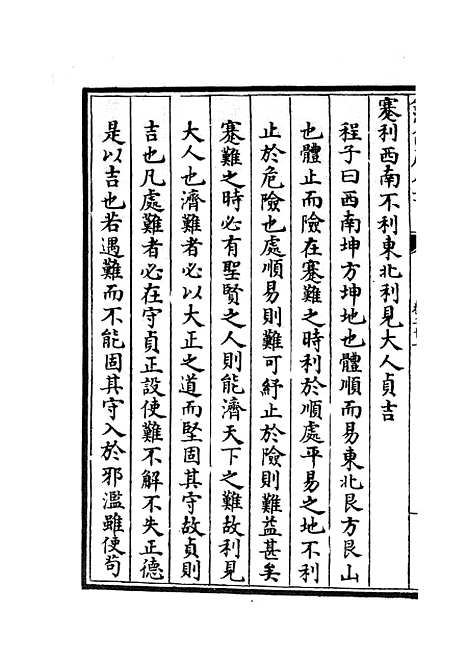 蹇利西南不利東北利見大人貞吉
程子曰西南坤方坤地也體順而易東北艮方艮山
也體止而險在蹇難之時利於順處平易之地不利
止於危險也處順易則難可紓止於險則難益甚矣
蹇難之時必有聖賢之人則能濟天下之難故利見
大人也濟難者必以大正之道而堅固其守故貞則
吉也凡處難者必在守貞正設使難不解不失正德
是以吉也若遇難而不能固其守入於邪濫雖使苟